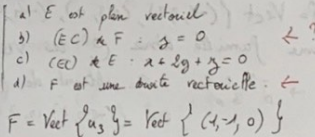 a) E est plan vectoriel
b) (EC) de F : z = 0 ← ?
c) (EC) de E : x + 2y + z = 0
d) F est une droite vectorielle. ←
F = Vect {u₃} = Vect { (1,-1, 0) }